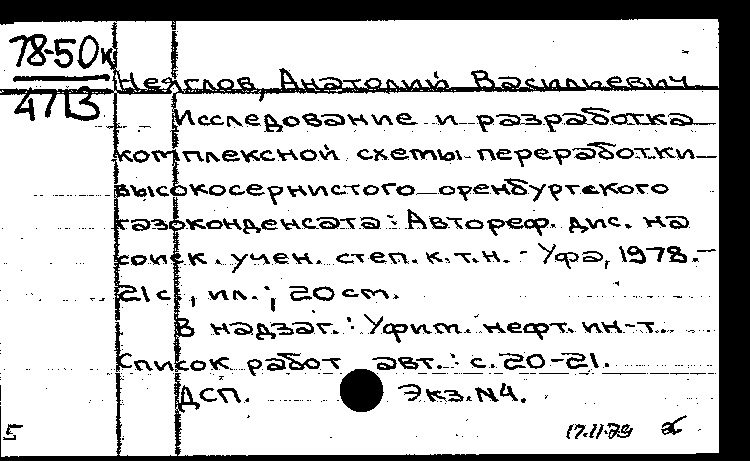 78-50к
4713
Неяглов, Анатолий Васильевич
Исследование и разработка
комплексной схемы переработки
высокосернистого оренбургского
газоконденсата : Автореф. дис. на
соиск. учен. степ. к.т.н. - Уфа, 1978.-
21 с., ил.; 20 см.
В надзаг.: Уфим. нефт. ин-т.
Список работ авт.: с. 20-21.
ДСП. Экз.N4.
5 17.11.79